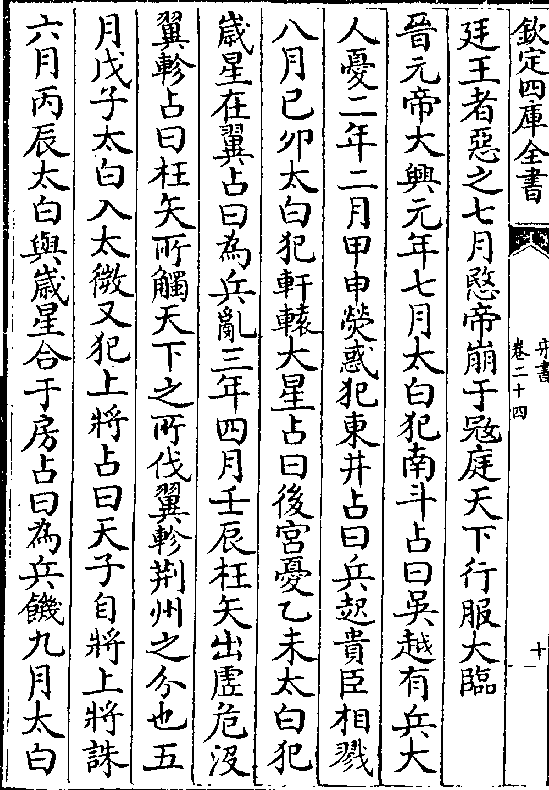 欽定四庫全書
宋書
卷二十四
十
廷王者惡之七月愍帝崩于寇庭天下行服大臨
晉元帝大興元年七月太白犯南斗占曰吳越有兵大
人憂二年二月甲申熒惑犯東井占曰兵起貴臣相戮
八月己卯太白犯軒轅大星占曰後宮憂乙未太白犯
歲星在翼占曰為兵亂三年四月壬辰枉矢出虛危沒
翼軫占曰枉矢所觸天下之所伐翼軫荆州之分也五
月戊子太白入太微又犯上將占曰天子自將上將誅
六月丙辰太白與歲星合于房占曰為兵饑九月太白